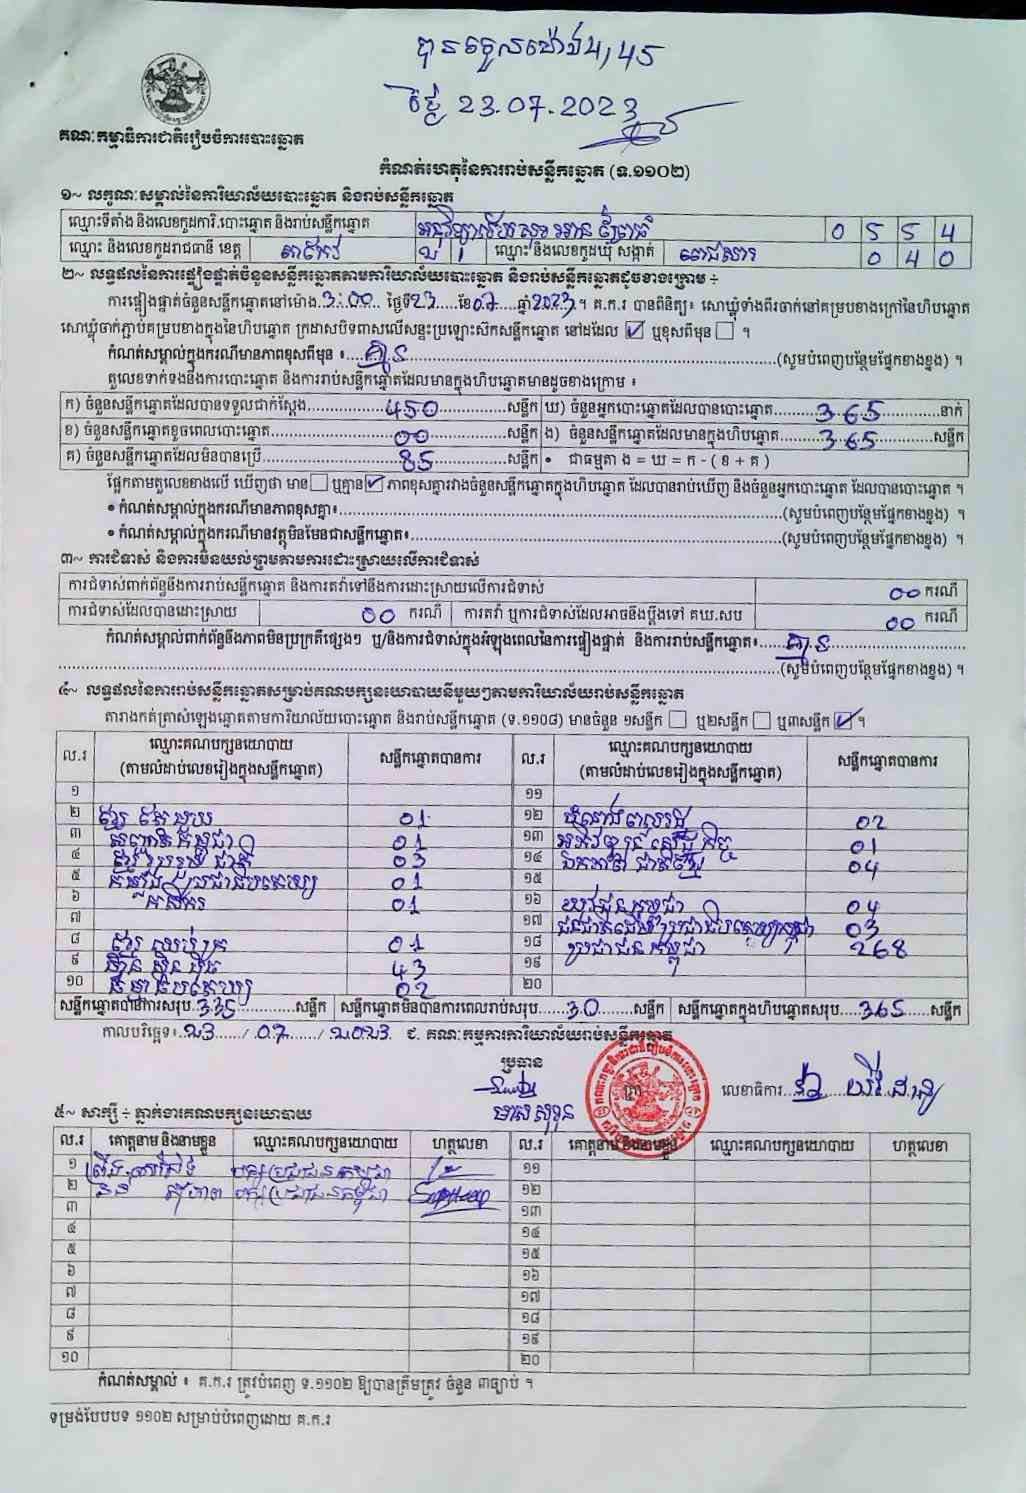 បានចូលម៉ោង 4,45
ថ្ងៃ 23.07.2023
គណៈកម្មាធិការជាតិរៀបចំការបោះឆ្នោត
កំណត់ហេតុនៃការរាប់សន្លឹកឆ្នោត (ទ.១១០២)
១~ លក្ខណៈសម្គាល់នៃការិយាល័យបោះឆ្នោត និងរាប់សន្លឹកឆ្នោត
ឈ្មោះទីតាំង និងលេខកូដការិ.បោះឆ្នោត និងរាប់សន្លឹកឆ្នោត 0 5 5 4
ឈ្មោះ និងលេខកូដរាជធានី ខេត្ត តាកែវ 2 1 ឈ្មោះ និងលេខកូដឃុំ សង្កាត់ ពេជសារ 0 4 0
២~ លទ្ធផលនៃការផ្ទៀងផ្ទាត់ចំនួនសន្លឹកឆ្នោតតាមការិយាល័យបោះឆ្នោត និងរាប់សន្លឹកឆ្នោតដូចខាងក្រោម ÷
ការផ្ទៀងផ្ទាត់ចំនួនសន្លឹកឆ្នោតនៅម៉ោង 3:00 ថ្ងៃទី 23 ខែ 07 ឆ្នាំ 2023 ។ គ.ក.រ បានពិនិត្យ៖ សោឃ្លុំទាំងពីរចាក់នៅគម្របខាងក្រៅនៃហិបឆ្នោត
សោឃ្លុំចាក់ភ្ជាប់គម្របខាងក្នុងនៃហិបឆ្នោត ក្រដាសបិទពាសលើសន្ទះប្រឡោះស៊កសន្លឹកឆ្នោត នៅដដែល ☑ ឬខុសពីមុន ☐ ។
កំណត់សម្គាល់ក្នុងករណីមានភាពខុសពីមុន ៖ គ្មាន (សូមបំពេញបន្ថែមផ្នែកខាងខ្នង) ។
តួលេខទាក់ទងនឹងការបោះឆ្នោត និងការរាប់សន្លឹកឆ្នោតដែលមានក្នុងហិបឆ្នោតមានដូចខាងក្រោម ៖
ក) ចំនួនសន្លឹកឆ្នោតដែលបានទទួលជាក់ស្តែង 450 សន្លឹក ឃ) ចំនួនអ្នកបោះឆ្នោតដែលបានបោះឆ្នោត 365 នាក់
ខ) ចំនួនសន្លឹកឆ្នោតខូចពេលបោះឆ្នោត 00 សន្លឹក ង) ចំនួនសន្លឹកឆ្នោតដែលមានក្នុងហិបឆ្នោត 365 សន្លឹក
គ) ចំនួនសន្លឹកឆ្នោតដែលមិនបានប្រើ 85 សន្លឹក • ជាធម្មតា ង = ឃ = ក - ( ខ + គ )
ផ្អែកតាមតួលេខខាងលើ ឃើញថា មាន ☐ ឬគ្មាន ☑ ភាពខុសគ្នារវាងចំនួនសន្លឹកឆ្នោតក្នុងហិបឆ្នោត ដែលបានរាប់ឃើញ និងចំនួនអ្នកបោះឆ្នោត ដែលបានបោះឆ្នោត ។
• កំណត់សម្គាល់ក្នុងករណីមានភាពខុសគ្នា៖ (សូមបំពេញបន្ថែមផ្នែកខាងខ្នង) ។
• កំណត់សម្គាល់ក្នុងករណីមានវត្ថុមិនមែនជាសន្លឹកឆ្នោត៖ (សូមបំពេញបន្ថែមផ្នែកខាងខ្នង) ។
៣~ ការជំទាស់ និងការមិនយល់ព្រមតាមការដោះស្រាយលើការជំទាស់
ការជំទាស់ពាក់ព័ន្ធនឹងការរាប់សន្លឹកឆ្នោត និងការតវ៉ាទៅនឹងការដោះស្រាយលើការជំទាស់ 00 ករណី
ការជំទាស់ដែលបានដោះស្រាយ 00 ករណី ការតវ៉ា ឬការជំទាស់ដែលអាចនឹងប្តឹងទៅ គឃ.សប 00 ករណី
កំណត់សម្គាល់ពាក់ព័ន្ធនឹងភាពមិនប្រក្រតីផ្សេងៗ ឬ/និងការជំទាស់ក្នុងអំឡុងពេលនៃការផ្ទៀងផ្ទាត់ និងការរាប់សន្លឹកឆ្នោត៖ គ្មាន
(សូមបំពេញបន្ថែមផ្នែកខាងខ្នង) ។
៤~ លទ្ធផលនៃការរាប់សន្លឹកឆ្នោតសម្រាប់គណបក្សនយោបាយនីមួយៗតាមការិយាល័យរាប់សន្លឹកឆ្នោត
តារាងកត់ត្រាសំឡេងឆ្នោតតាមការិយាល័យបោះឆ្នោត និងរាប់សន្លឹកឆ្នោត (ទ.១១០៨) មានចំនួន ១សន្លឹក ☐ ឬ២សន្លឹក ☐ ឬ៣សន្លឹក ☑ ។
ល.រ ឈ្មោះគណបក្សនយោបាយ (តាមលំដាប់លេខរៀងក្នុងសន្លឹកឆ្នោត) សន្លឹកឆ្នោតបានការ ល.រ ឈ្មោះគណបក្សនយោបាយ (តាមលំដាប់លេខរៀងក្នុងសន្លឹកឆ្នោត) សន្លឹកឆ្នោតបានការ
១ ១១
២ ខ្មែរ តែ មួយ 01 ១២ 02
៣ សញ្ជាតិ កម្ពុជា 01 ១៣ 01
៤ ខ្មែរ រួបរួម ជាតិ 03 ១៤ ឯកភាព ជាតិខ្មែរ 04
៥ កម្លាំង ប្រជាធិបតេយ្យ 01 ១៥
៦ កសិករ 01 ១៦ យុវជន កម្ពុជា 04
៧ ១៧ ជនជាតិដើមប្រជាធិបតេយ្យកម្ពុជា 03
៨ ខ្មែរ ឈប់ក្រ 01 ១៨ ប្រជាជន កម្ពុជា 268
៩ ហ៊្វុន ស៊ិន ប៉ិច 43 ១៩
១០ ធម្មាធិបតេយ្យ 02 ២០
សន្លឹកឆ្នោតបានការសរុប 335 សន្លឹក សន្លឹកឆ្នោតមិនបានការពេលរាប់សរុប 30 សន្លឹក សន្លឹកឆ្នោតក្នុងហិបឆ្នោតសរុប 365 សន្លឹក
កាលបរិច្ឆេទ៖ 23 / 07 / 2023 ជ. គណៈកម្មការការិយាល័យរាប់សន្លឹកឆ្នោត
ប្រធាន
លេខាធិការ
មាស សុខុន
៥~ សាក្សី ÷ ភ្នាក់ងារគណបក្សនយោបាយ
ល.រ គោត្តនាម និងនាមខ្លួន ឈ្មោះគណបក្សនយោបាយ ហត្ថលេខា ល.រ គោត្តនាម និងនាមខ្លួន ឈ្មោះគណបក្សនយោបាយ ហត្ថលេខា
១ បក្សប្រជាជនកម្ពុជា ១១
២ បក្សប្រជាជនកម្ពុជា ១២
៣ ១៣
៤ ១៤
៥ ១៥
៦ ១៦
៧ ១៧
៨ ១៨
៩ ១៩
១០ ២០
កំណត់សម្គាល់ ៖ គ.ក.រ ត្រូវបំពេញ ទ.១១០២ ឱ្យបានត្រឹមត្រូវ ចំនួន ៣ច្បាប់ ។
ទម្រង់បែបបទ ១១០២ សម្រាប់បំពេញដោយ គ.ក.រ